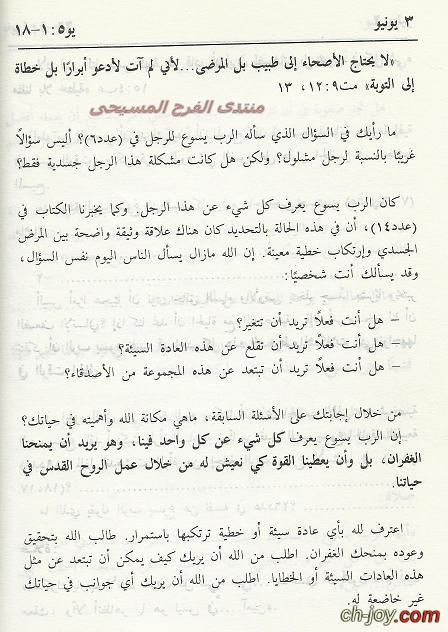 ٣ يونيو
يو٥:١-١٨
«لا يحتاج الأصحاء إلى طبيب بل المرضى...لأني لم آت لأدعو أبرارًا بل خطاة
إلى التوبة» مت٩:١٢، ١٣
منتدى الفرح المسيحى
ما رأيك في السؤال الذي سأله الرب يسوع للرجل في (عدد٦)؟ أليس سؤالاً
غريبًا بالنسبة لرجل مشلول؟ ولكن هل كانت مشكلة هذا الرجل جسدية فقط؟
كان الرب يسوع يعرف كل شيء عن هذا الرجل. وكما يخبرنا الكتاب في
(عدد١٤)، أن في هذه الحالة بالتحديد كان هناك علاقة وثيقة واضحة بين المرض
الجسدي وإرتكاب خطية معينة. إن الله مازال يسأل الناس اليوم نفس السؤال،
وقد يسألك أنت شخصيًا:
– هل أنت فعلاً تريد أن تتغير؟
– هل أنت فعلاً تريد أن تقلع عن هذه العادة السيئة؟
– هل أنت فعلاً تريد أن تبتعد عن هذه المجموعة من الأصدقاء؟
من خلال إجابتك على الأسئلة السابقة، ماهي مكانة الله وأهميته في حياتك؟
إن الرب يسوع يعرف كل شيء عن كل واحد فينا، وهو يريد أن يمنحنا
الغفران، بل وأن يعطينا القوة كي نعيش له من خلال عمل الروح القدس في
حياتنا.
اعترف لله بأي عادة سيئة أو خطية ترتكبها باستمرار. طالب الله بتحقيق
وعوده بمنحك الغفران. اطلب من الله أن يريك كيف يمكن أن تبتعد عن مثل
هذه العادات السيئة أو الخطايا. اطلب من الله أن يريك أي جوانب في حياتك
غير خاضعة له.
ch-joy.com